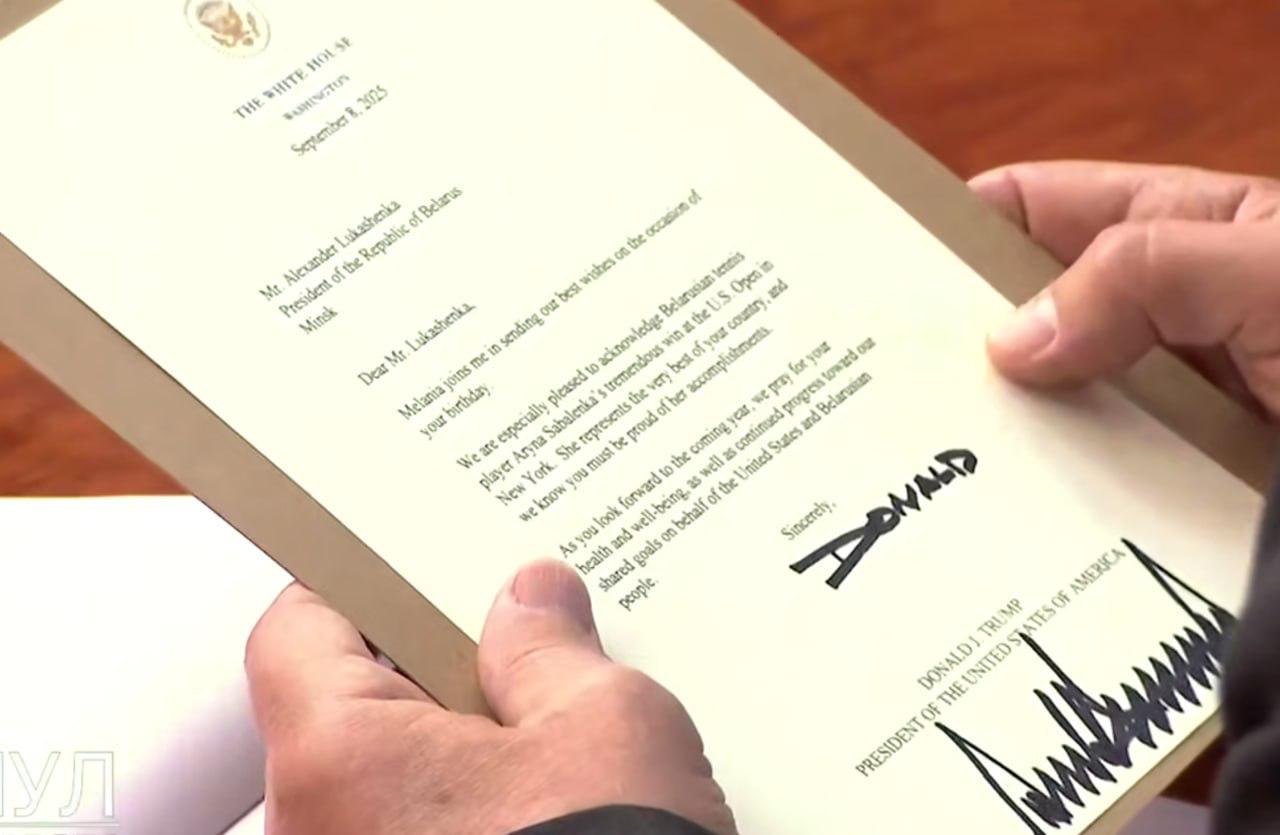 THE WHITE HOUSE
WASHINGTON
September 8, 2025
Mr. Alexander Lukashenka
President of the Republic of Belarus
Minsk
Dear Mr. Lukashenka,
Melania joins me in sending our best wishes on the occasion of
your birthday.
We are especially pleased to acknowledge Belarusian tennis
player Aryna Sabalenka's tremendous win at the U.S. Open in
New York. She represents the very best of your country, and
we know you must be proud of her accomplishments.
As you look forward to the coming year, we pray for your
health and well-being, as well as continued progress toward our
shared goals on behalf of the United States and Belarusian
people.
Sincerely,
DONALD
DONALD J. TRUMP
PRESIDENT OF THE UNITED STATES OF AMERICA